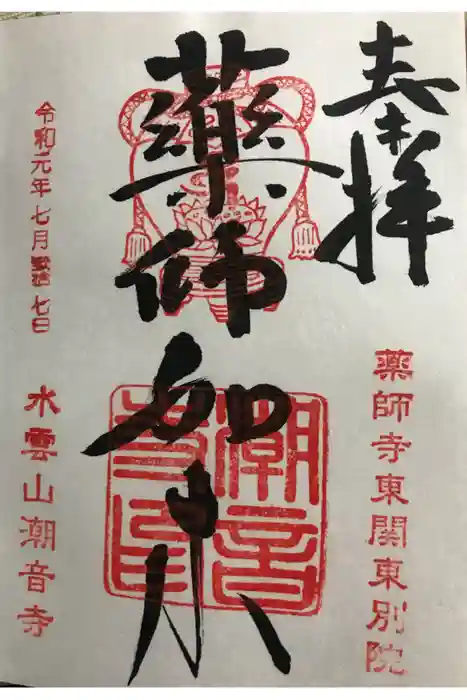 奉拝
薬師寺東関東別院
藥師如来
潮音
寺印
令和元年七月貳拾七日
水雲山潮音寺